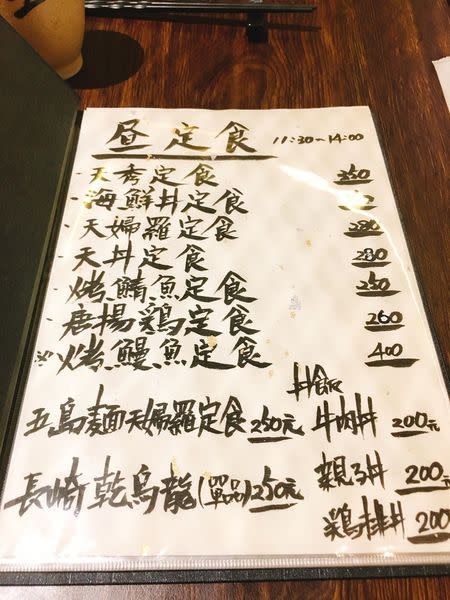 昼定食 11:30~14:00
天秀定食 350
海鮮丼定食
天婦羅定食 280
天丼定食 280
烤鯖魚定食 250
唐揚鶏定食 260
烤鰻魚定食 400
五島麵天婦羅定食 250元
長崎乾烏龍(單品) 250元
丼飯
牛肉丼 200元
親子丼 200元
鶏排丼 200